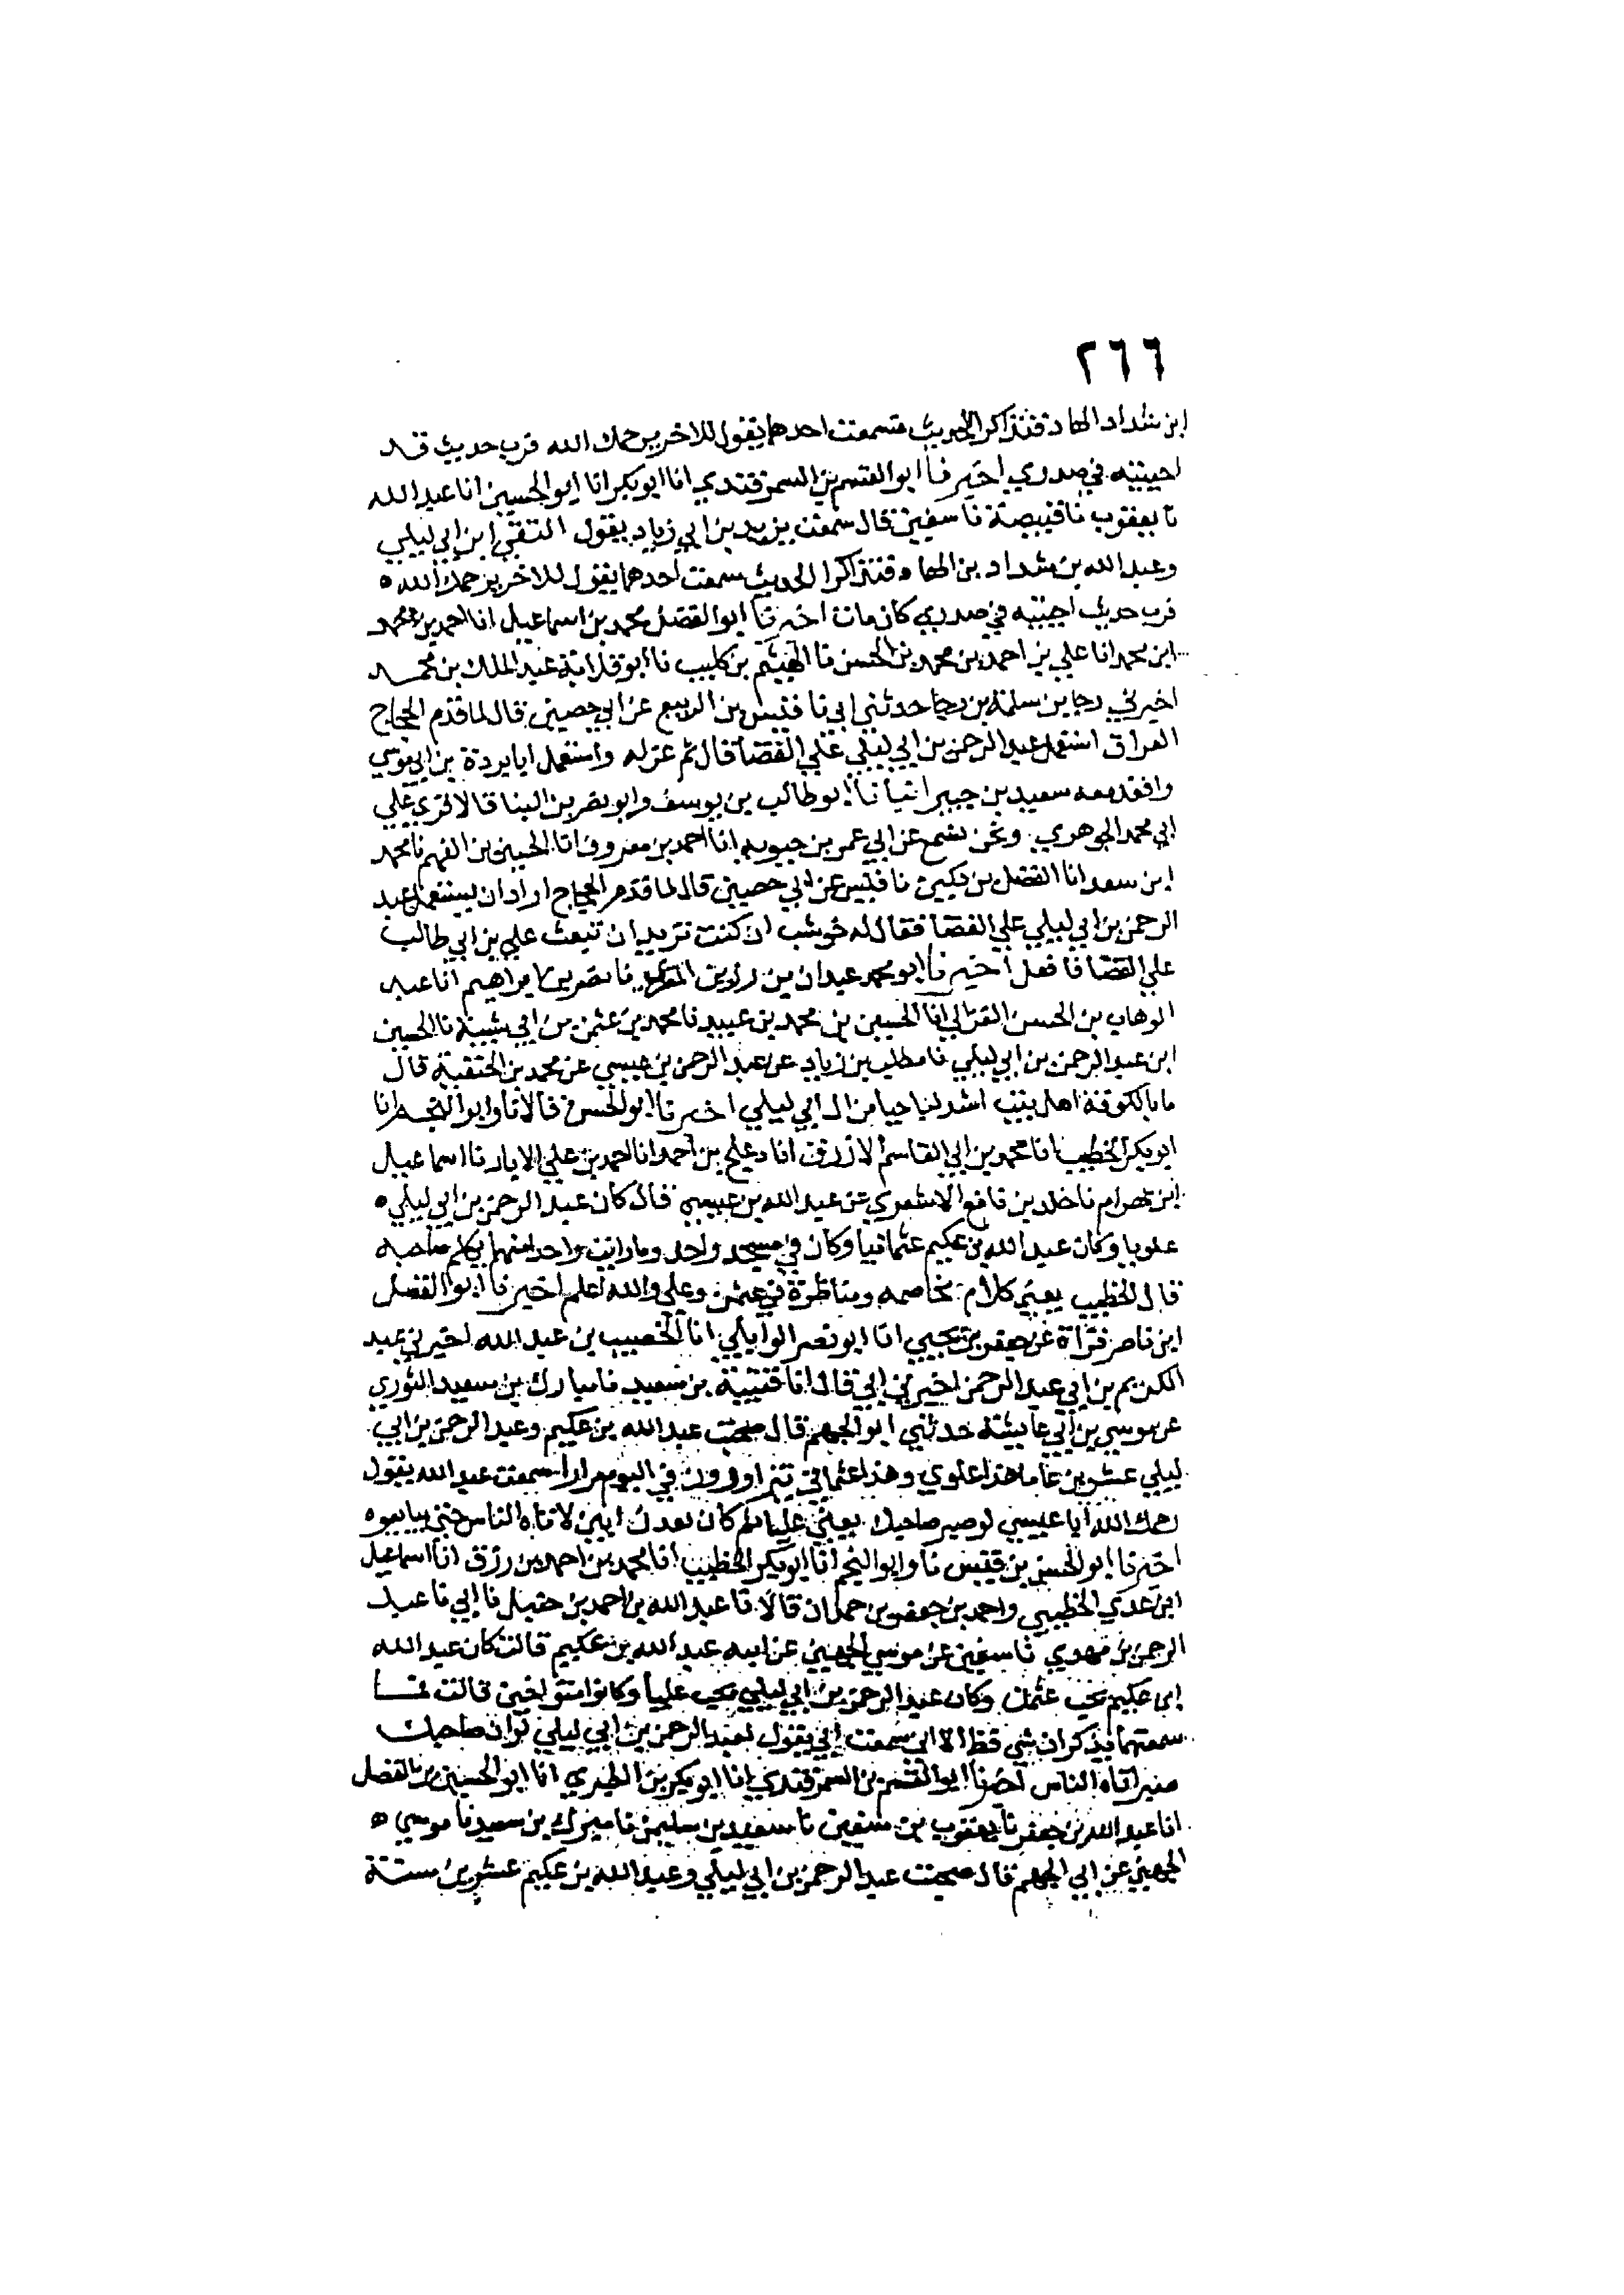 ٢٦٦
ابن شداد الهاد فتذاكرا الحديث فسمعت احدهما يقول للاخر يرحمك الله فرب حديث قد
احييته في صدري اخبرنا ابو القسم بن السمرقندي انا ابو بكر انا ابو الحسين انا عبد الله
نا يعقوب نا قبيصة نا سفين قال سمعت يزيد بن ابي زياد يقول التقى ابن ابي ليلي
وعبد الله بن شداد بن الهاد فتذاكرا الحديث سمعت احدهما يقول للاخر يرحمك الله ه
فرب حديث احييته في صدري كان مات اخبرنا ابو الفضل محمد بن اسماعيل انا احمد بن محمد
ابن محمد انا علي بن احمد بن محمد بن الحسن نا الهيثم بن كليب نا ابو قلابة عبد الملك بن محمد
اخبرني رجا بن سلمة بن رجا حدثني ابي نا قيس بن الربيع عن ابي حصين قال لما قدم الحجاج
العراق استعمل عبد الرحمن بن ابي ليلي علي القضا قال ثم عزله واستعمل ابا بردة بن ابي موسي
واقعد معه سعيد بن جبير انبانا ابو طالب بن يوسف وابو نصر بن البنا قالا قري علي
ابي محمد الجوهري ونحن نسمع عن ابي عمر بن حيويه انا احمد بن معروف انا الحسين بن الفهم نا محمد
ابن سعد انا الفضل بن دكين نا قيس عن ابي حصين قال لما قدم الحجاج اراد ان يستعمل عبد
الرحمن بن ابي ليلي علي القضا فقال له حوشب ان كنت تريد ان تبعث علي بن ابي طالب
علي القضا فافعل اخبرنا ابو محمد عبدان بن رزين المقري نا نصر بن ابراهيم انا عبد
الوهاب بن الحسن الغزالي انا الحسين بن محمد بن عبيد نا محمد بن عثمن بن ابي شيبة نا الحسين
ابن عبد الرحمن بن ابي ليلي نا مطلب بن زياد عن عبد الرحمن بن عيسي عن محمد بن الحنفية قال
ما بالكوفة اهل بيت اشد لنا حبا من ال ابي ليلي اخبرنا ابو الحسن قالا نا وابو النجم انا
ابو بكر الخطيب انا محمد بن ابي القاسم الازرق انا دعلج بن احمد انا احمد بن علي الابار نا اسماعيل
ابن بهرام نا خلد بن نافع الاشعري عن عبد الله بن عيسي قال كان عبد الرحمن بن ابي ليلي ه
علويا وكان عبد الله بن عكيم عثمانيا وكان في مسجد واحد وما رايت واحد منهما يكلم صاحبه
قال الخطيب يعني كلام مخاصمه ومناظرة في عثمن وعلي والله اعلم اخبرنا ابو الفضل
ابن ناصر قراة عن جعفر بن يحيي انا ابو نصر الوايلي انا الخصيب بن عبد الله اخبرني عبد
الكريم بن ابي عبد الرحمن اخبرني ابي قال انا قتيبة بن سعيد نا مبارك بن سعيد الثوري
عن موسي بن ابي عايشة حدثني ابو الجهم قال صحبت عبد الله بن عكيم وعبد الرحمن بن ابي
ليلي عشرين عاما هذا علوي وهذا عثماني يتزاورون في اليوم مرارا سمعت عبد الله يقول
رحمك الله ابا عيسي لو صبر صاحبك يعني عليا ثم كان بعدن ابين لاتاه الناس حتي يبايعوه
اخبرنا ابو الحسن بن قبيس نا وابو النجم انا ابو بكر الخطيب انا محمد بن احمد بن رزق انا اسماعيل
ابن علي الخطبي واحمد بن جعفر بن حمدان قالا نا عبد الله بن احمد بن حنبل نا ابي نا عبد
الرحمن بن مهدي نا سفين عن موسي الجهني عن ابنه عبد الله بن عكيم قالت كان عبد الله
ابن عكيم يحب عثمن وكان عبد الرحمن بن ابي ليلي يحب عليا وكانوا متواخين قالت فما
سمعتهما يذكران شي قط الا اني سمعت ابي يقول لعبد الرحمن بن ابي ليلي لو ان صاحبك
صبر اتاه الناس اخبرنا ابو القسم بن السمرقندي انا ابو بكر بن الطبري انا ابو الحسين بن الفضل
انا عبد الله بن جعفر نا يعقوب بن سفين نا سعيد بن سليمن نا مبرك بن سعيد نا موسي ه
الجهني عن ابي الجهم قال صحبت عبد الرحمن بن ابي ليلي وعبد الله بن عكيم عشرين سنة